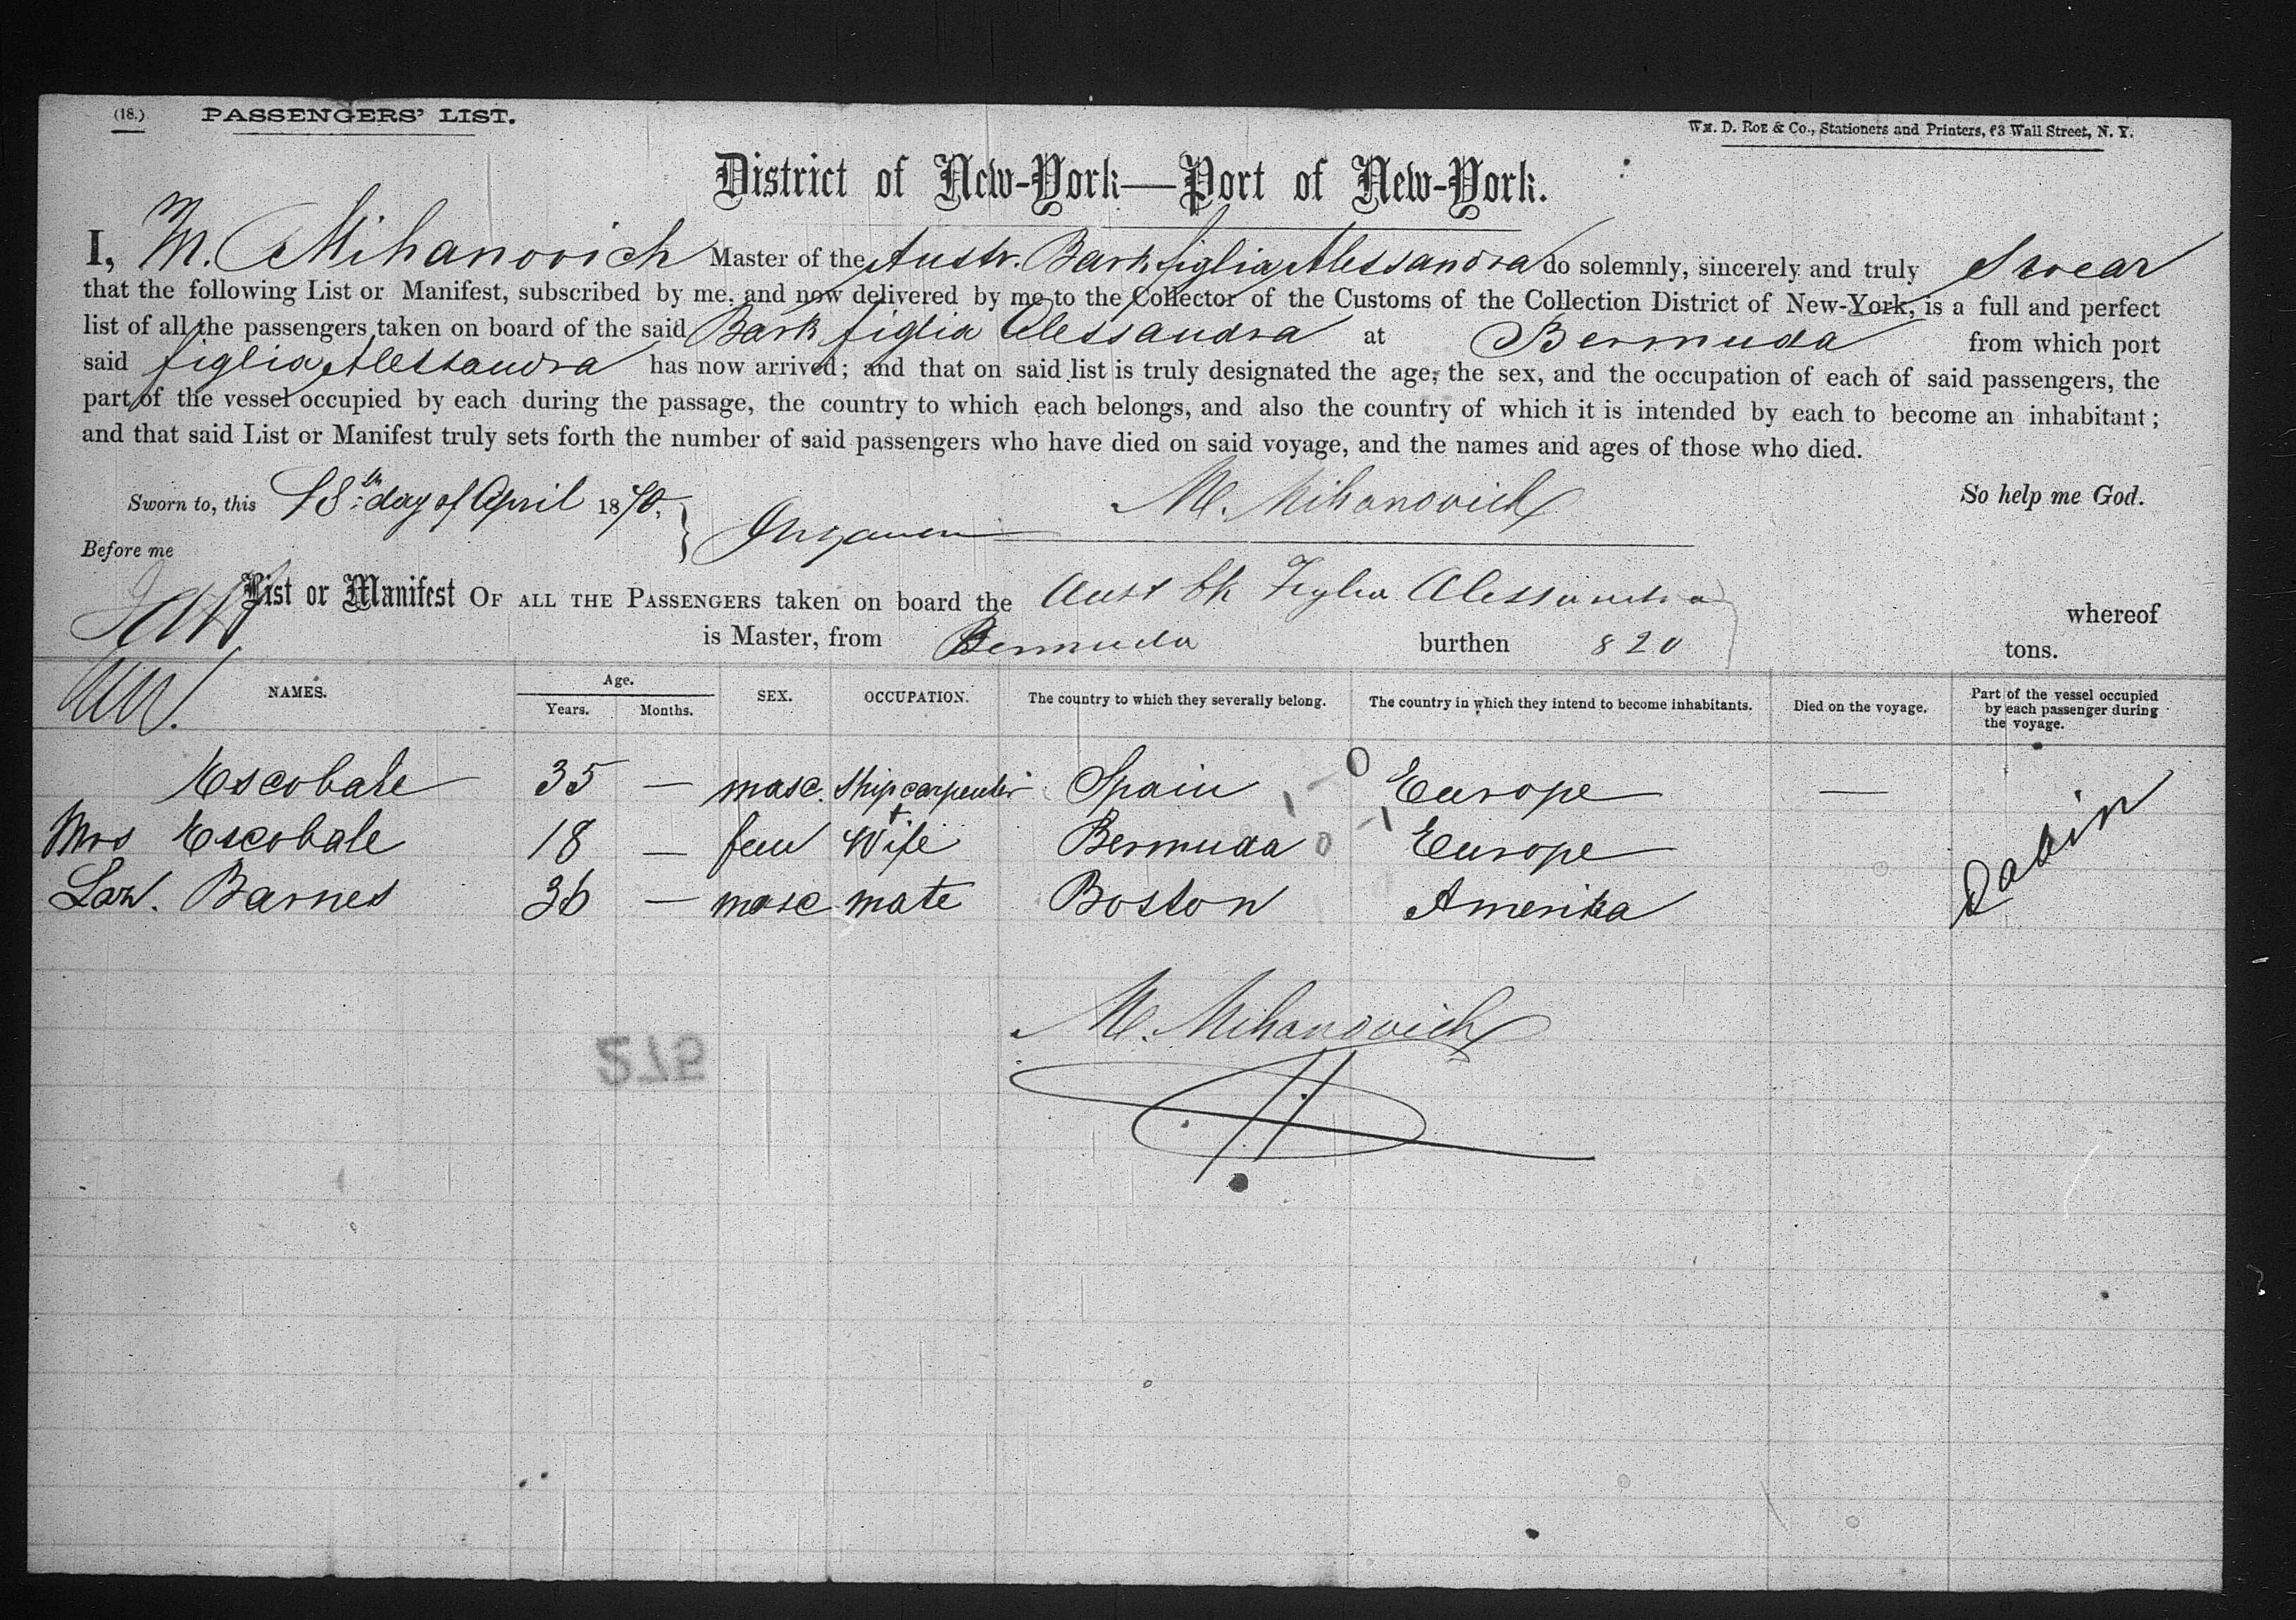 (18.) PASSENGERS' LIST.
WM. D. ROE & Co., Stationers and Printers, 63 Wall Street, N. Y.
District of New-York—Port of New-York.
I, M. Mihanovich Master of the Austr. Bark figlia Alessandra do solemnly, sincerely and truly Swear
that the following List or Manifest, subscribed by me, and now delivered by me to the Collector of the Customs of the Collection District of New-York, is a full and perfect
list of all the passengers taken on board of the said Bark figlia Alessandra at Bermuda from which port
said figlia Alessandra has now arrived; and that on said list is truly designated the age, the sex, and the occupation of each of said passengers, the
part of the vessel occupied by each during the passage, the country to which each belongs, and also the country of which it is intended by each to become an inhabitant;
and that said List or Manifest truly sets forth the number of said passengers who have died on said voyage, and the names and ages of those who died.
Sworn to, this 18th day of April 1870, M. Mihanovich So help me God.
Before me
List or Manifest OF ALL THE PASSENGERS taken on board the Aust bk Figlia Alessandra whereof
is Master, from Bermuda burthen 820 tons.
NAMES. Age. Years. Months. SEX. OCCUPATION. The country to which they severally belong. The country in which they intend to become inhabitants. Died on the voyage. Part of the vessel occupied by each passenger during the voyage.
Escobale 35 — masc. Shipcarpenter Spain 1 - 0 Europe —
Mrs Escobale 18 — fem Wife Bermuda 0 - 1 Europe
Law. Barnes 36 — masc mate Boston Amerika
Cabin
M. Mihanovich